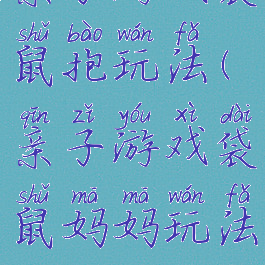 shǔ bào wán fǎ
鼠抱玩法(
qīn zǐ yóu xì dài
亲子游戏袋
shǔ mā mā wán fǎ
鼠妈妈玩法